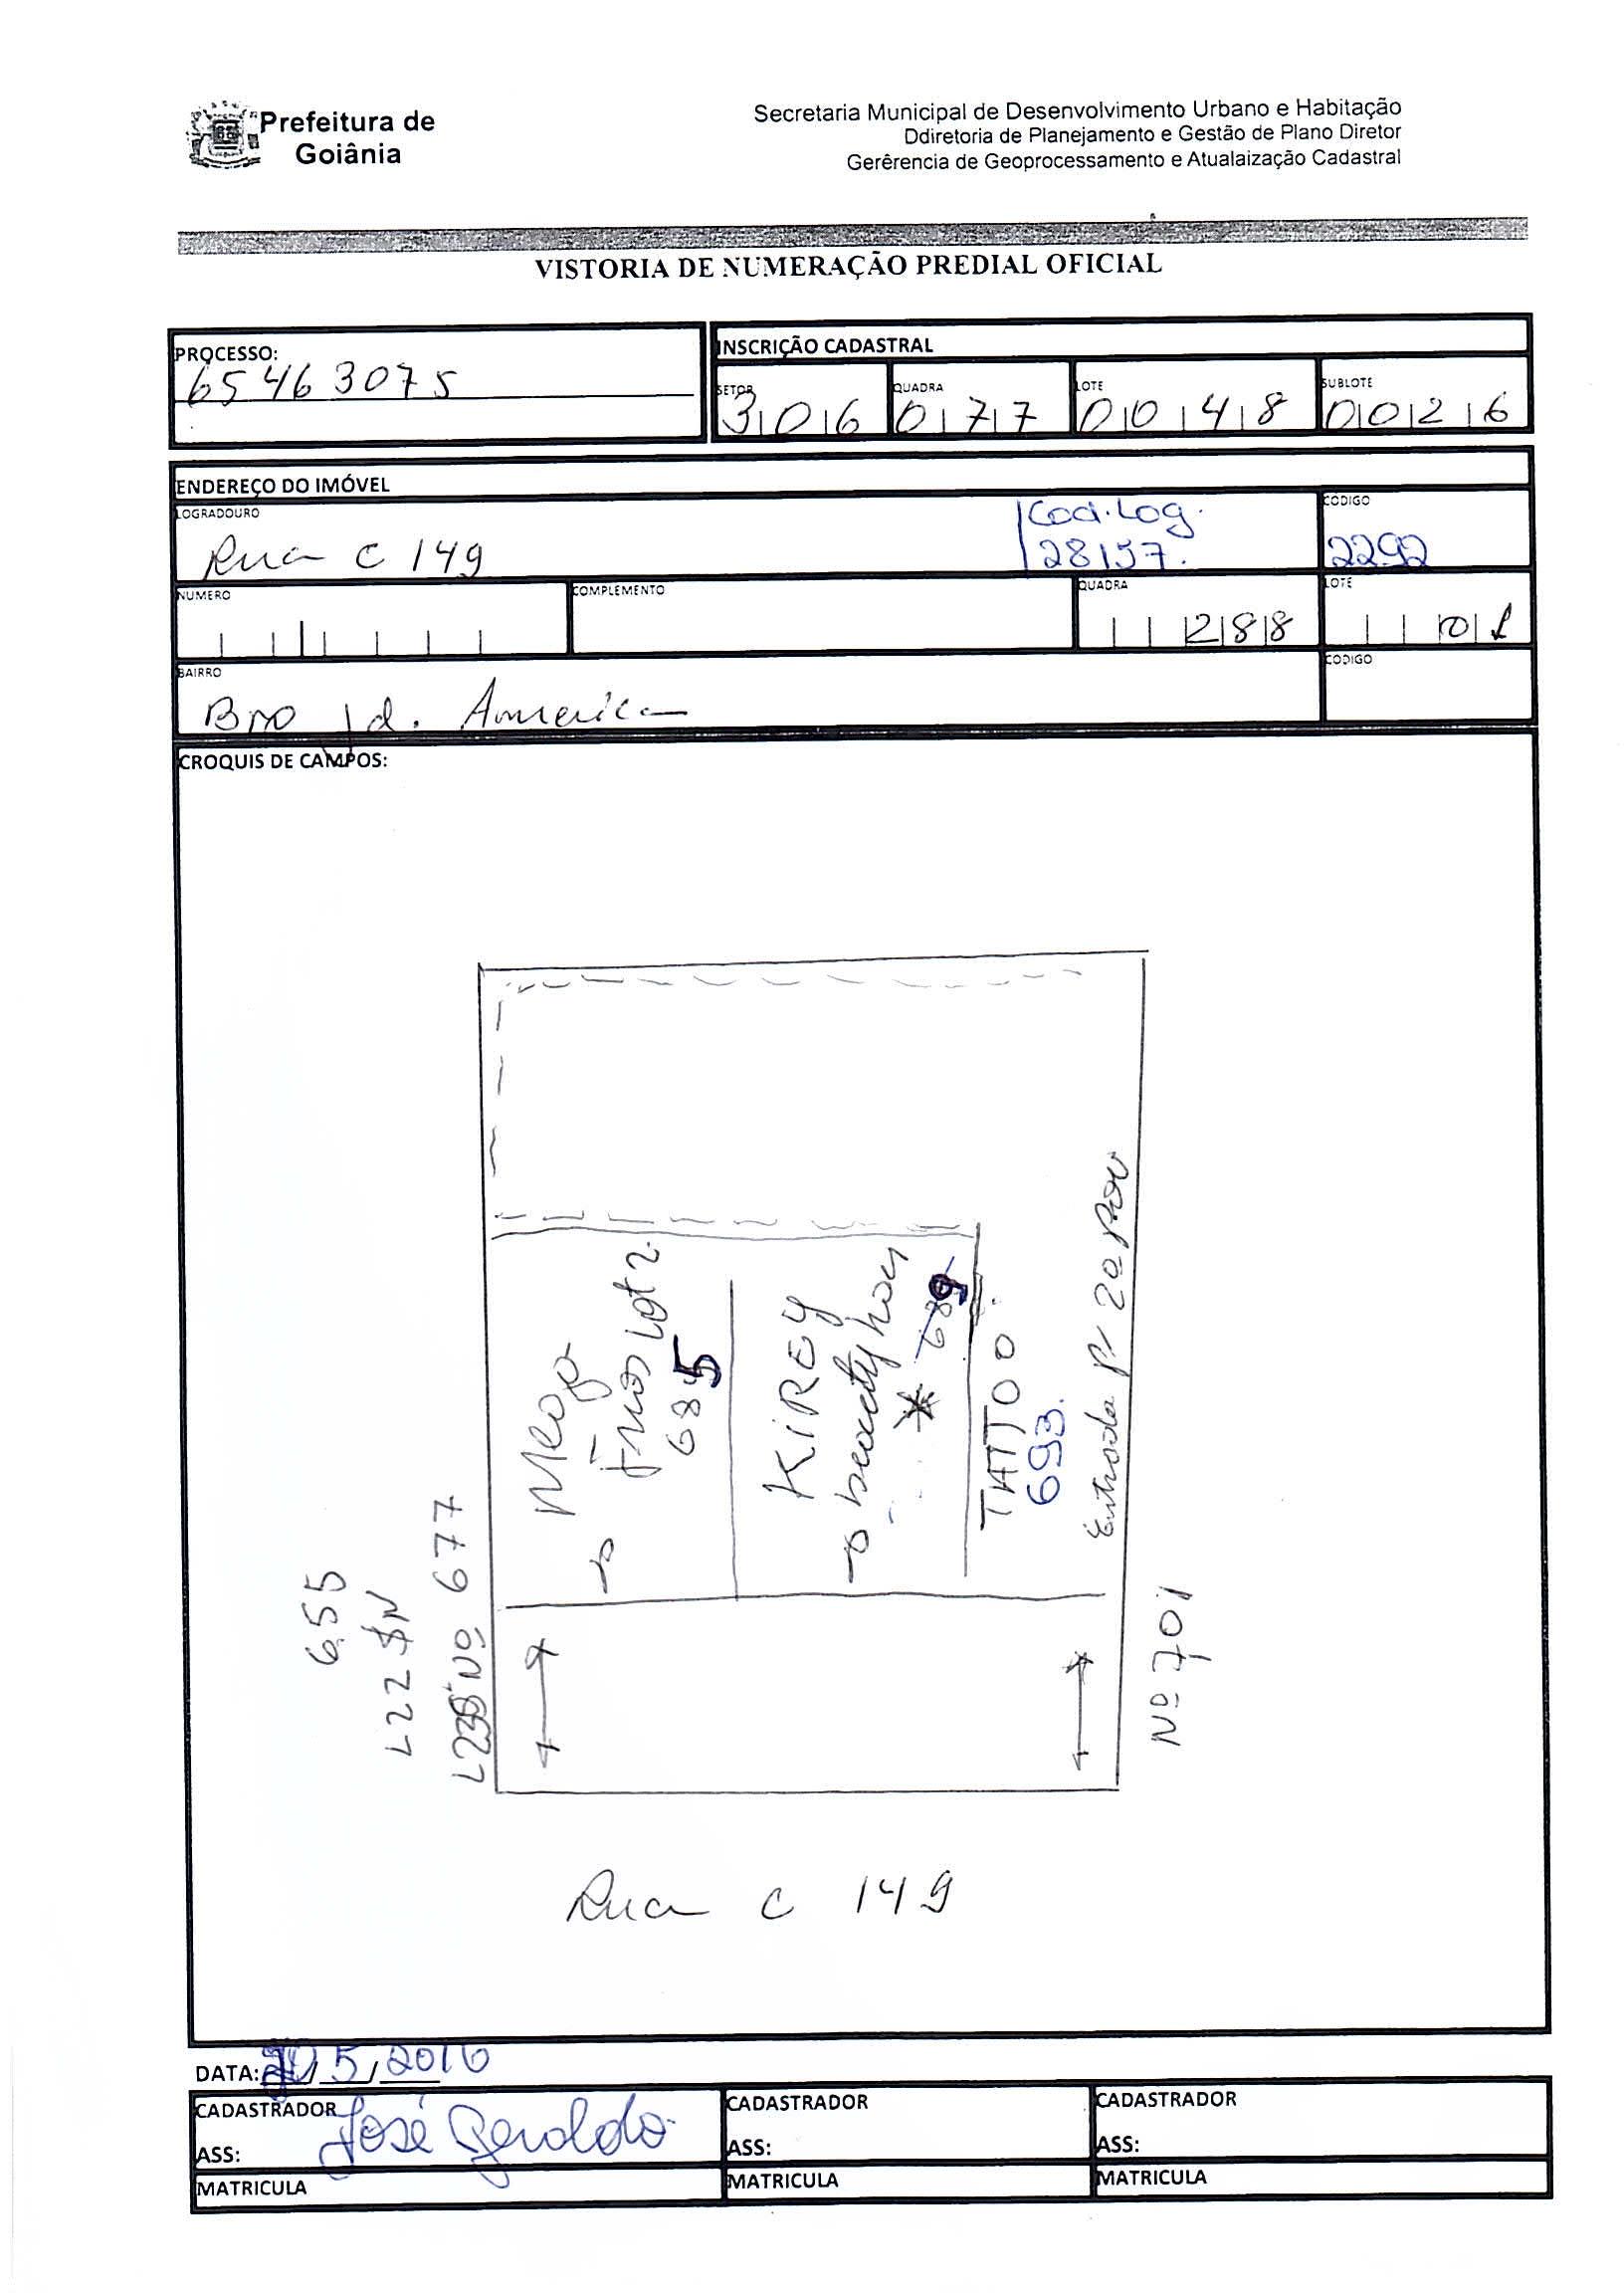 Prefeitura de
Goiânia
Secretaria Municipal de Desenvolvimento Urbano e Habitação
Ddiretoria de Planejamento e Gestão de Plano Diretor
Gerêrencia de Geoprocessamento e Atualaização Cadastral
VISTORIA DE NUMERAÇÃO PREDIAL OFICIAL
PROCESSO:
65463075
INSCRIÇÃO CADASTRAL
SETOR QUADRA LOTE SUBLOTE
306 077 0048 0026
ENDEREÇO DO IMÓVEL
LOGRADOURO
Rua C 149
Cod. Log.
28157.
CODIGO
2292
NUMERO
COMPLEMENTO
QUADRA
288
LOTE
01
BAIRRO
Bro Jd. America
CODIGO
CROQUIS DE CAMPOS:
655
L22 SN
677
685
KIREY
689
TATTOO
693.
Entrada P/ 2º Pav
Nº 701
Rua C 149
DATA: / 5 / 2016
CADASTRADOR
José Geraldo
ASS:
MATRICULA
CADASTRADOR
ASS:
MATRICULA
CADASTRADOR
ASS:
MATRICULA